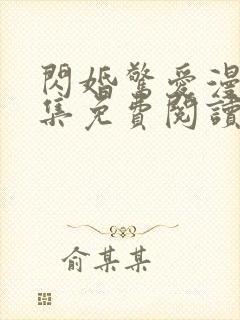 閃婚驚愛漫
集免費閱讀
俞某某